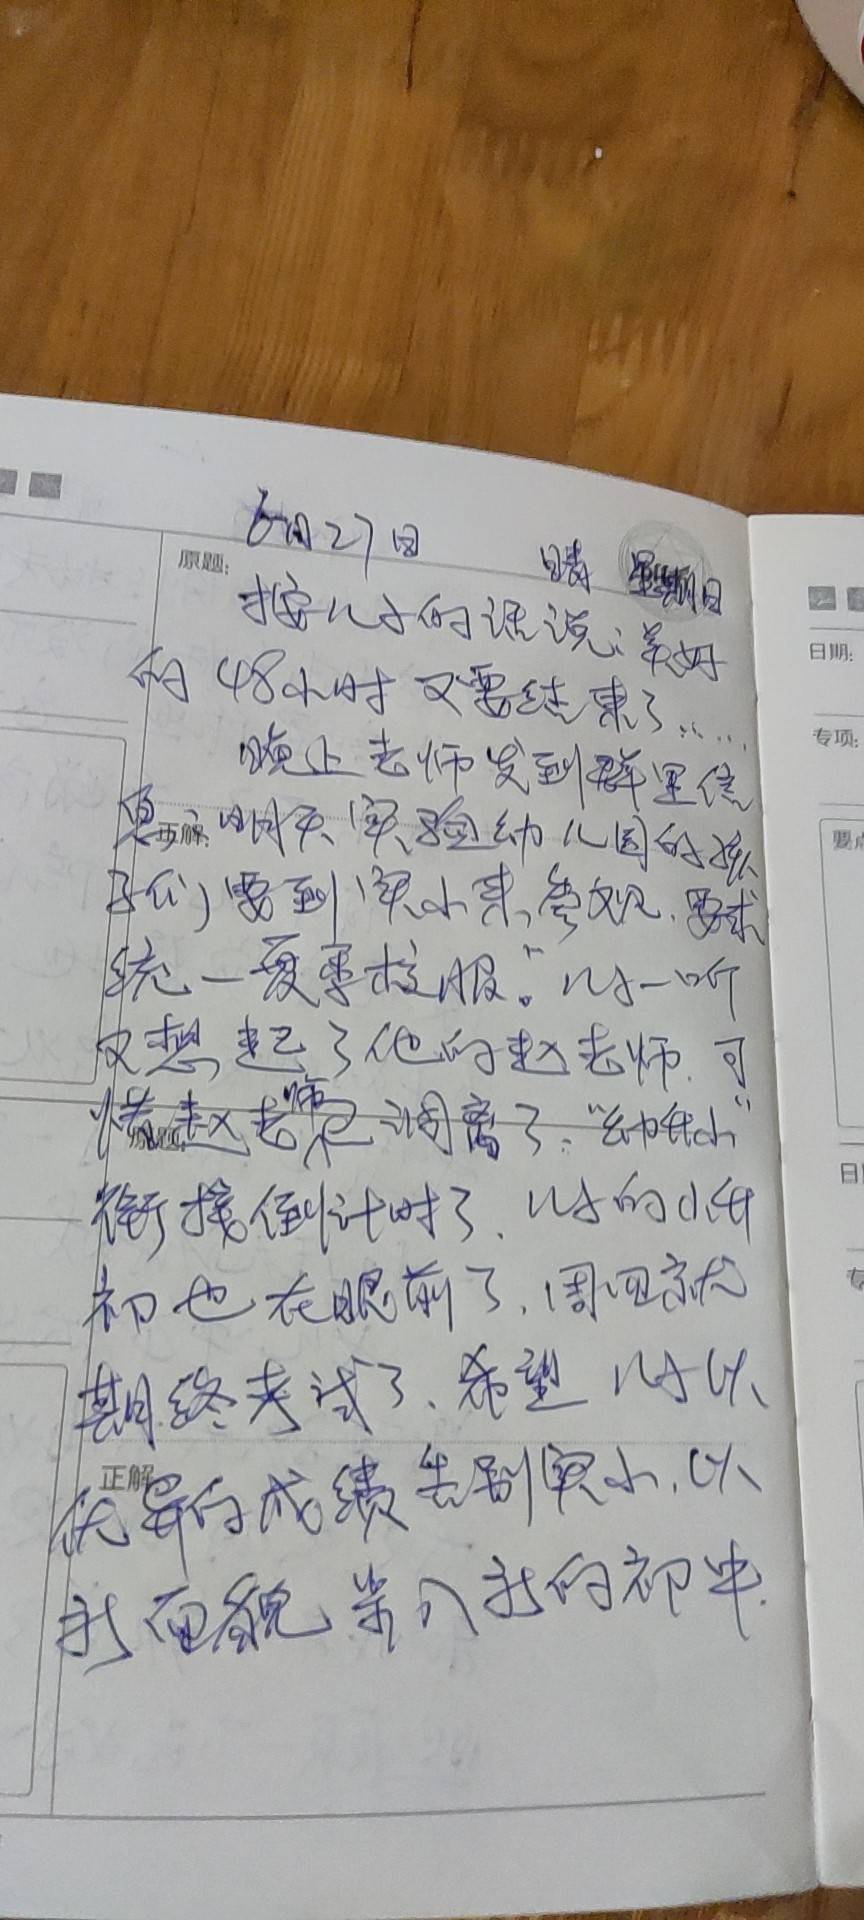 6月27日 晴 星期日
原题:
按儿子的话说:美好
的48小时又要结束了……
晚上老师发到群里信
息:"明天实验幼儿园的孩
正解:
子们要到实小来参观,要求
统一夏季校服。"儿子一听
又想起了他的赵老师,可
惜赵老师已调离了,"幼升小"
原题:
衔接倒计时了,儿子的小升
初也在眼前了,周四就
期终考试了,希望儿子以
正解:
优异的成绩告别实小,以
新面貌步入新的初中.
日期:
专项:
要点
日
专